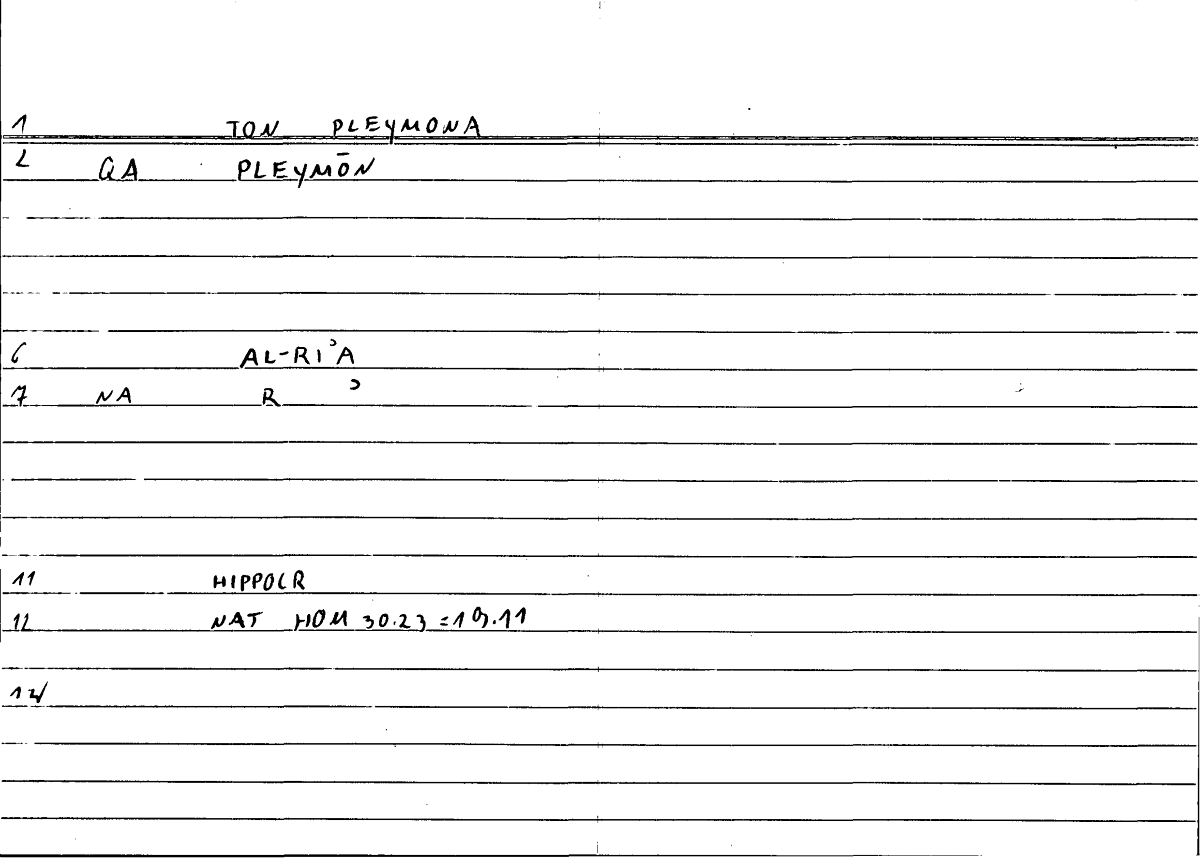 1 TON PLEYMONA
2 QA PLEYMŌN
6 AL-RIʾA
7 NA R ʾ
11 HIPPOCR
12 NAT HOM 30.23 = 19.11